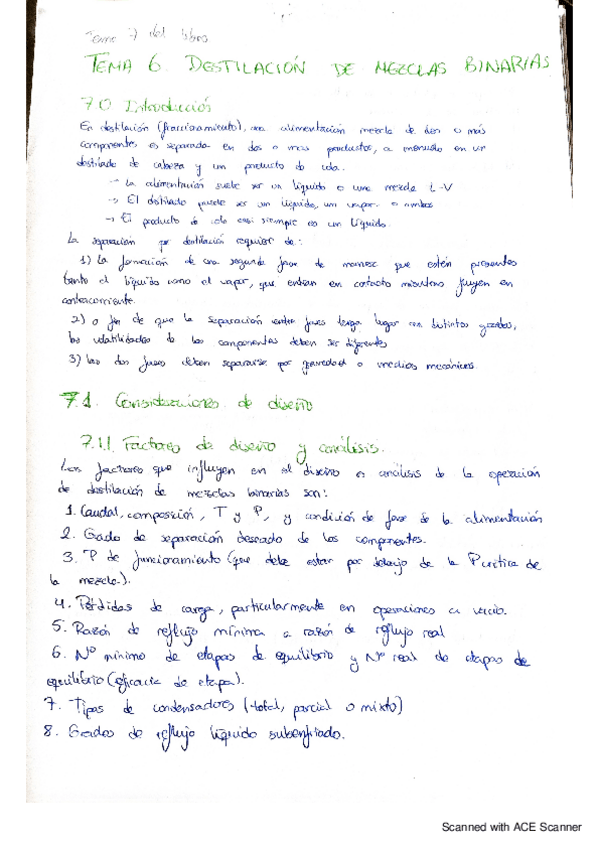 Tema 7 del libro
TEMA 6. DESTILACIÓN DE MEZCLAS BINARIAS
7.0 Introducción
En destilación (fraccionamiento), una alimentación mezcla de dos o más
componentes es separada en dos o mas productos, a menudo en un
destilado de cabeza y un producto de cola.
-> La alimentación suele ser un líquido o una mezcla L-V
-> El destilado puede ser un líquido, un vapor o ambos
-> El producto de cola casi siempre es un líquido.
La separación por destilación requier de:
1) La formación de una segunda fase de manera que estén presentes
tanto el líquido como el vapor, que entran en contacto mientras fluyen en
contracorriente.
2) a fin de que la separación entre fases tenga lugar con distintos grados,
las volatilidades de los componentes deben ser diferentes
3) las dos fases deben separarse por gravedad o medios mecánicos.
7.1. Consideraciones de diseño
7.1.1. Factores de diseño y análisis.
Los factores que influyen en el diseño o analisis de la operación
de destilación de mezclas binarias son:
1. Caudal, composición, T y P, y condición de fase de la alimentación
2. Grado de separación deseado de los componentes.
3. P de funcionamiento (que debe estar por debajo de la P crítica de
la mezcla).
4. Pérdidas de carga, particularmente en operaciones a vacio.
5. Razón de reflujo mínima o razón de reflujo real
6. Nº mínimo de etapas de equilibrio y Nº real de etapas de
equilibrio (eficacia de etapa).
7. Tipos de condensadores (total, parcial o mixto)
8. Grados de reflujo líquido subenfriado.
Scanned with ACE Scanner